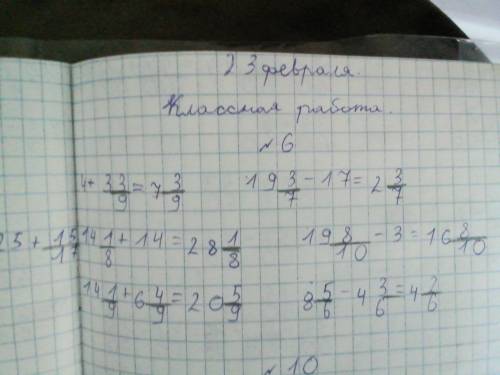 23 февраля.
Классная работа.
№6
4 + 3 3/9 = 7 3/9    19 3/7 - 17 = 2 3/7
25 + 15/17    14 1/8 + 14 = 28 1/8    19 8/10 - 3 = 16 8/10
14 1/9 + 6 4/9 = 20 5/9    8 5/6 - 4 3/6 = 4 2/6
№10